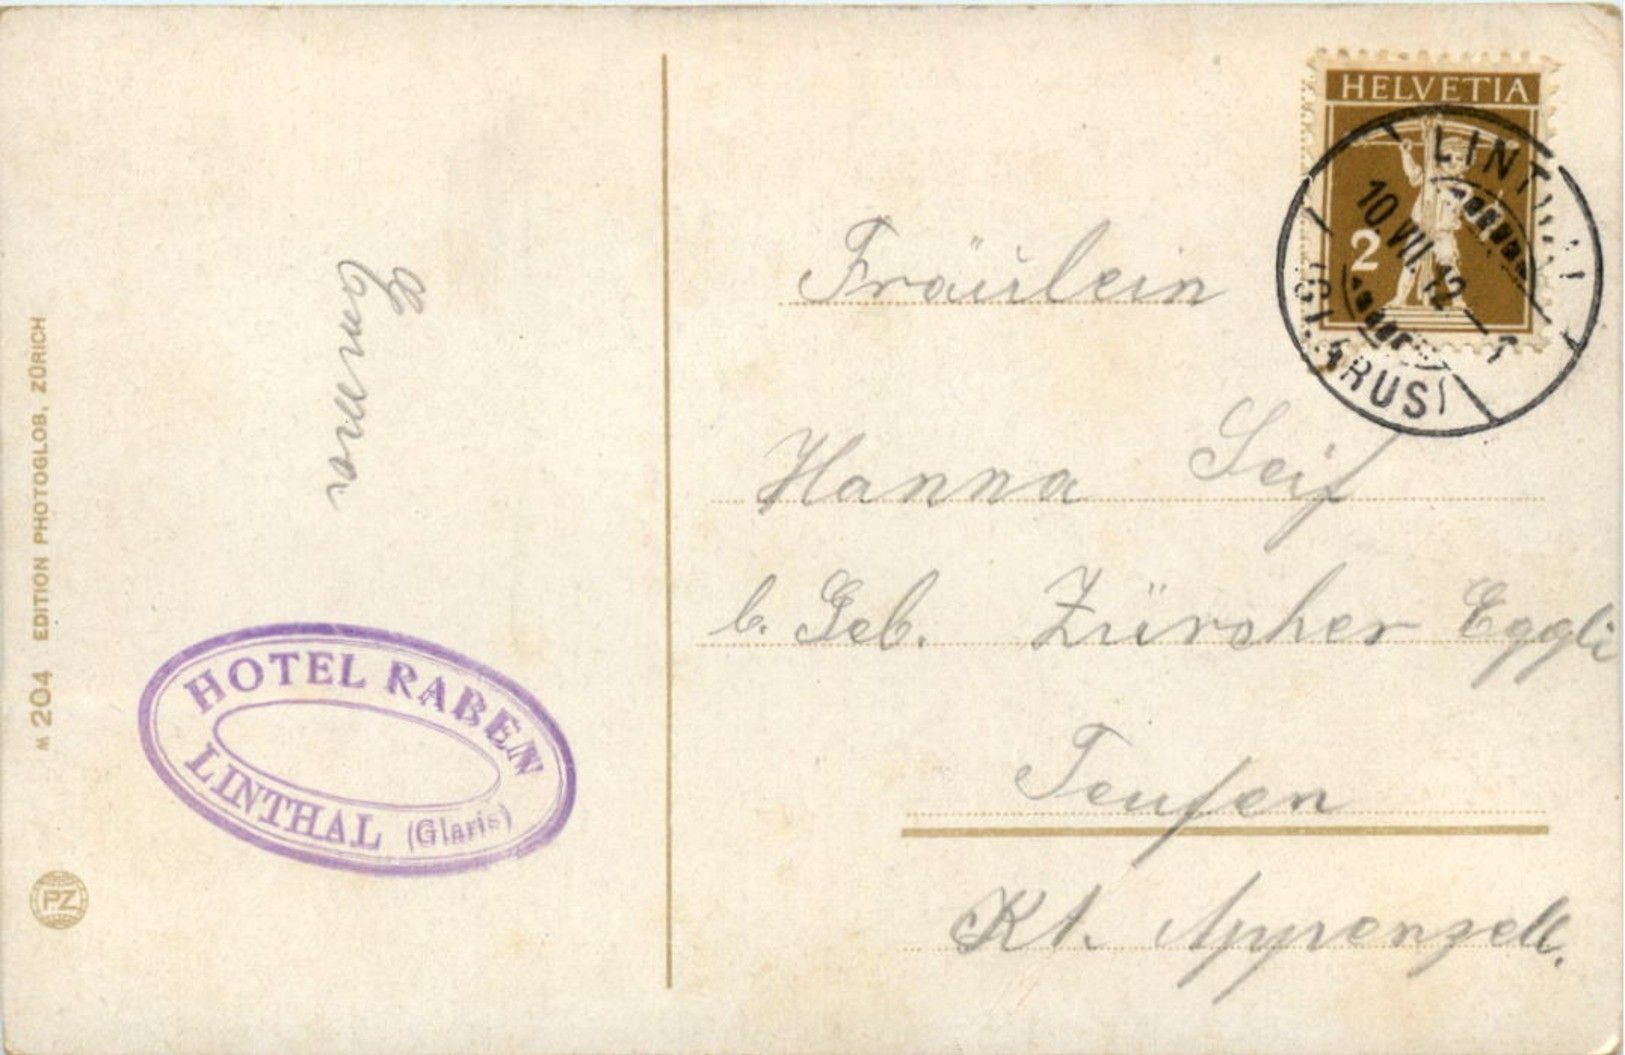 HELVETIA
2
LINTHAL
10.VIII.12
(GLARUS)
Fräulein
Hanna Seif
b. Geb. Zürcher Eggli
Teufen
Kt. Appenzell.
HOTEL RABEN
LINTHAL (Glaris)
204 EDITION PHOTOGLOB, ZÜRICH
PZ